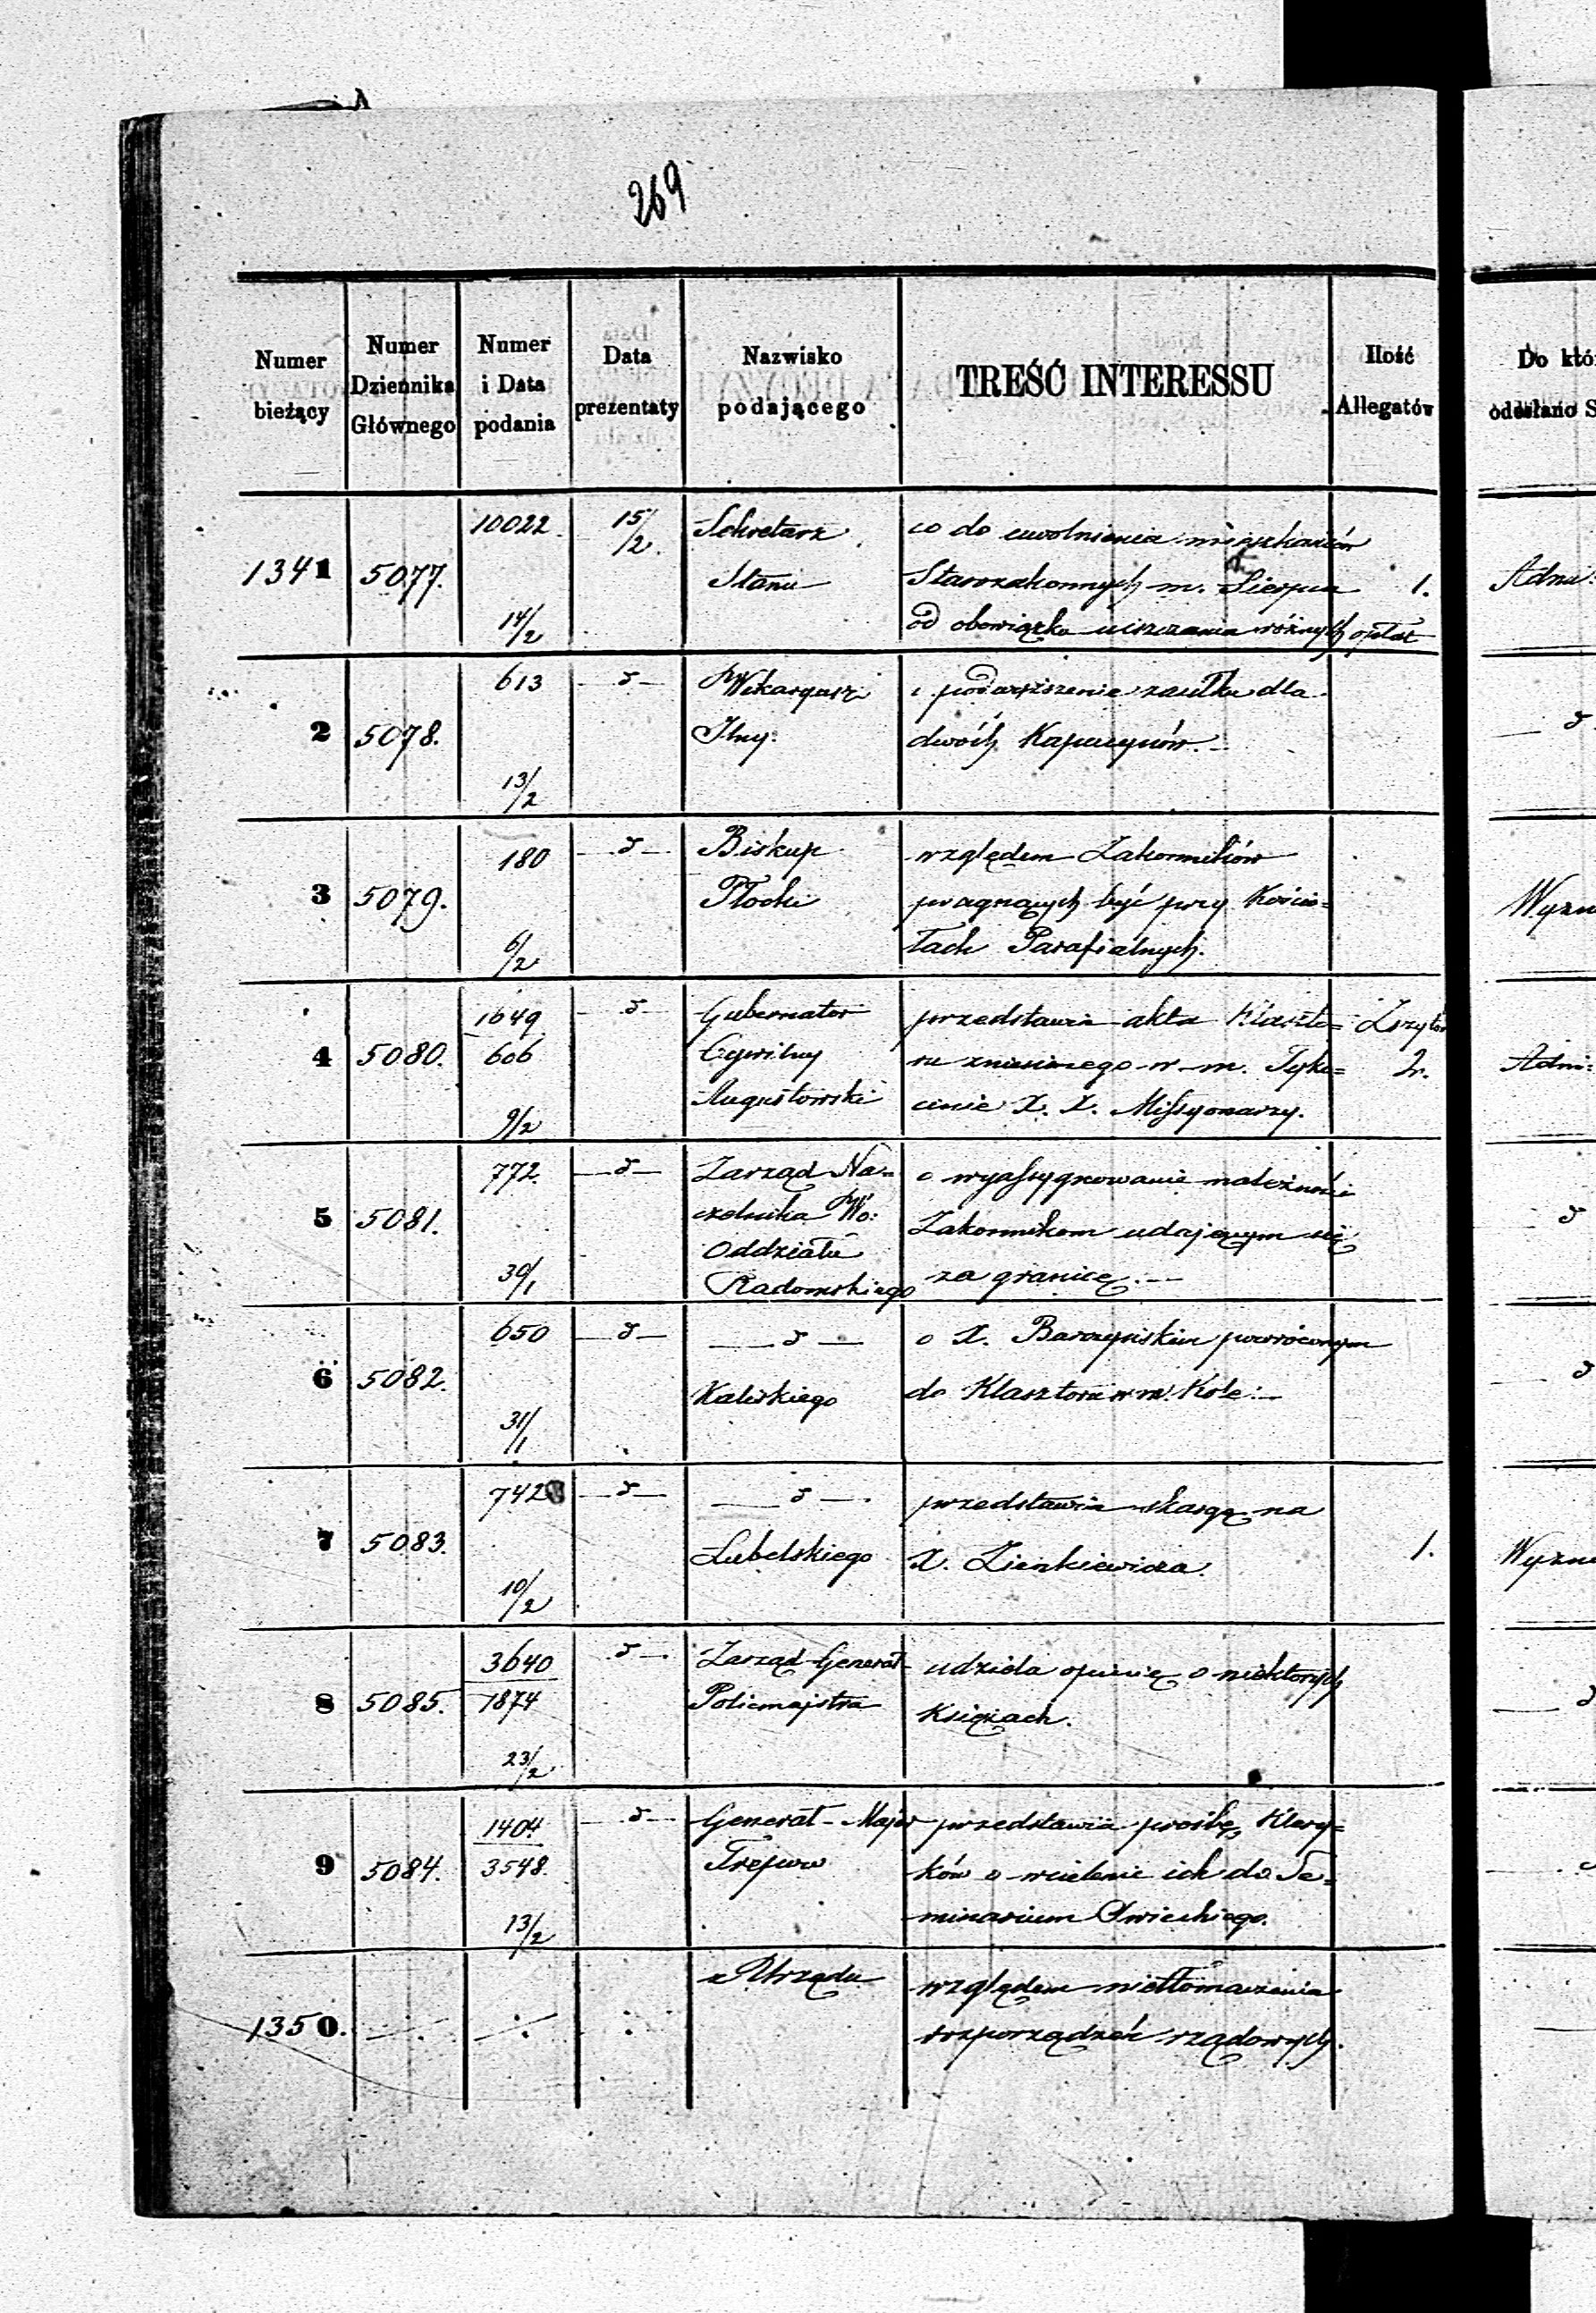 269
Numer bieżący | Numer Dziennika Głównego | Numer i Data podania | Data prezentaty | Nazwisko podającego | TREŚĆ INTERESSU | Ilość Allegatów | Do któ
odesłano S
1341 | 5077. | 10022. 14/2 | 15/2. | Sekretarz | co do uwolnienia mieszkańców
Stanu | Starozakonnych m. Sierpca | 1. | Adm:
od obowiązku uiszczania różnych opłat
2 | 5078. | 613 13/2 | —d— | Wikaryusz | o podwyższenie zasiłku dla
Jlny. | dwóch Kapucynów. — | —d
3 | 5079. | 180 6/2 | —d— | Biskup | względem Zakonników
Płocki | pragnących być przy Kościo= | Wyzn
łach Parafialnych.
4 | 5080. | 1649 606 9/2 | —d— | Gubernator | przedstawia akta Klaszto= | Zszytów
Cywilny | ru zniesionego w m. Tyko= | 2. | Adm:
Augustowski | cinie X. X. Missyonarzy.
5 | 5081. | 772. 30/1 | —d— | Zarząd Na= | o wyassygnowanie należności
czelnika Wo: | Zakonnikom udającym się | d
Oddziału | za granicę. —
Radomskiego
6 | 5082. | 650 31/1 | —d— | —d— | o X. Barczyńskim powróconym
Kaliskiego | do Klasztoru w m. Kole: — | —d
7 | 5083. | 742 10/2 | —d— | —d— | przedstawia skargę na
Lubelskiego | X. Zienkiewicza. | 1. | Wyzn
8 | 5085. | 3640 1874 23/2 | d— | Zarząd Generał | udziela opinię o niektórych
Policmajstra | Księżach. | —d
9 | 5084. | 1404 3548. 13/2 | —d— | Generał-Major | przedstawia prośbę Klery=
Trepow | ków o wcielenie ich do Se=
minarium Świeckiego.
1350. | —:— | —:— | : | z Urzędu | względem nietłomaczenia
rozporządzeń rządowych.